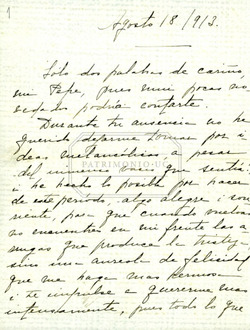 1
Agosto 18/913.
Solo dos palabras de cariño,
mi Pepe, pues mui pocas no-
vedades podria contarte.
Durante tu ausencia no he
querido dejarme tomar por i-
deas melancólicas a pesar
del inmenso vacio que sentia
i he hecho lo posible por hacer
de este período, algo alegre i son-
riente, para que cuando vuelvas
no encuentres en mi frente las a-
rrugas que produce la tristeza
sino una aureola de felicidad
que me haga mas hermosa
i te impulse a quererme mas
intensamente, pues todo lo que
PATRIMONIO UC